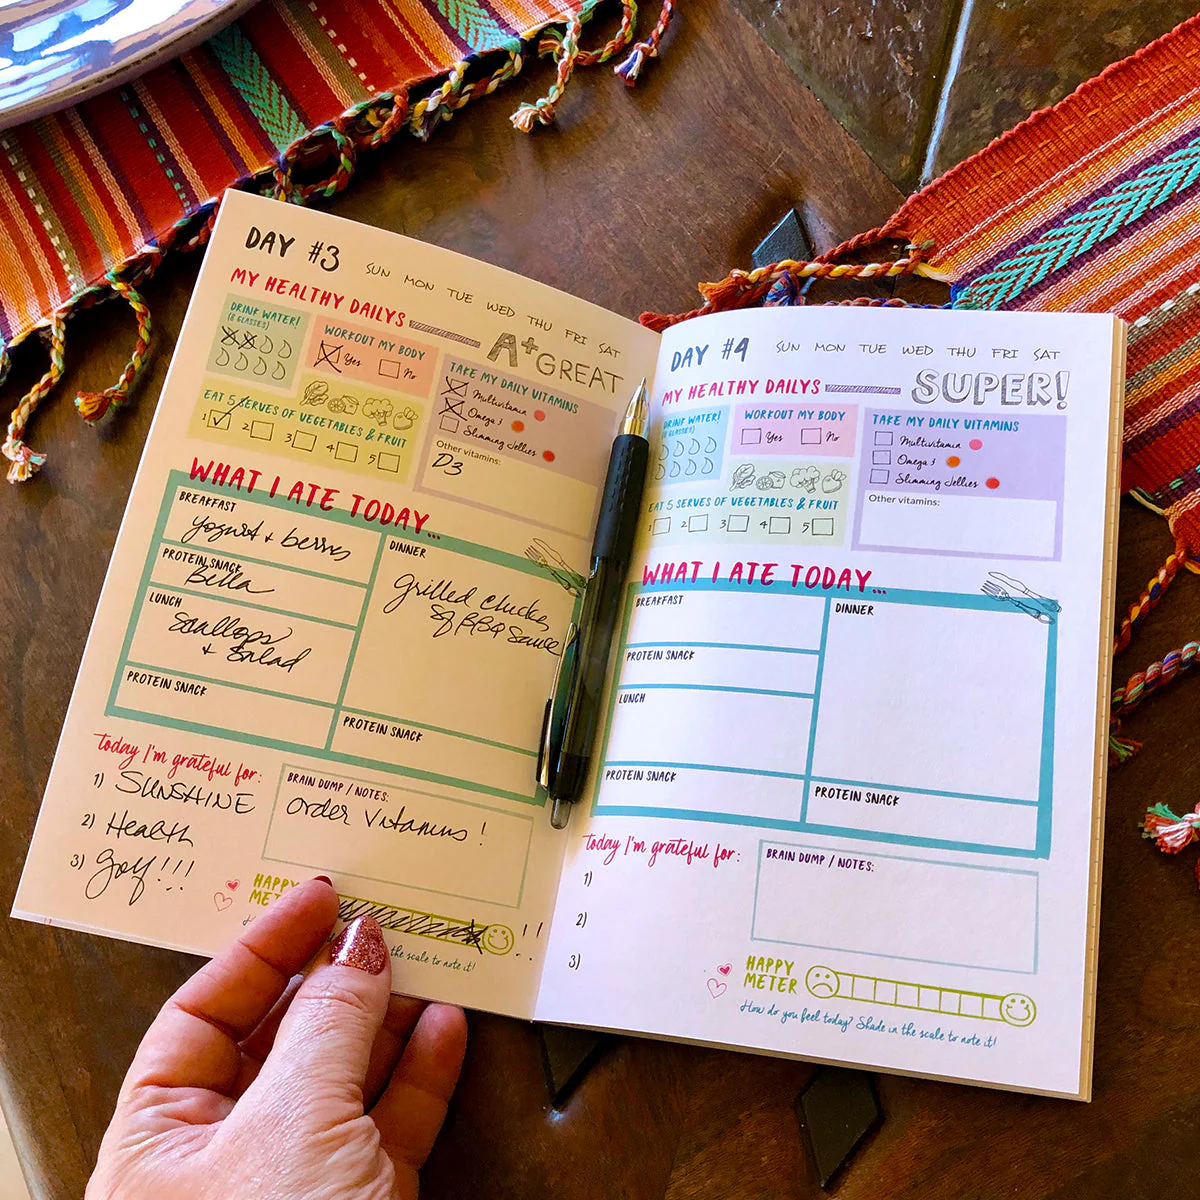 DAY #3
SUN MON TUE WED THU FRI SAT
MY HEALTHY DAILYS
A+ GREAT
DRINK WATER!
(8 GLASSES)
WORKOUT MY BODY
Yes No
TAKE MY DAILY VITAMINS
Multivitamin
Omega 3
Slimming Jellies
Other vitamins:
D3
EAT 5 SERVES OF VEGETABLES & FRUIT
1 2 3 4 5
WHAT I ATE TODAY...
BREAKFAST
Yogurt + berries
PROTEIN SNACK
Bella
LUNCH
Scallops
+ Salad
PROTEIN SNACK
DINNER
Grilled chicken
BBQ Sauce
PROTEIN SNACK
today I'm grateful for:
1) SUNSHINE
2) Health
3) Joy!!!
BRAIN DUMP / NOTES:
Order Vitamins!
HAPPY
METER
!!
the scale to note it!
DAY #4
SUN MON TUE WED THU FRI SAT
MY HEALTHY DAILYS
SUPER!
DRINK WATER!
(8 GLASSES)
WORKOUT MY BODY
Yes No
TAKE MY DAILY VITAMINS
Multivitamin
Omega 3
Slimming Jellies
Other vitamins:
EAT 5 SERVES OF VEGETABLES & FRUIT
1 2 3 4 5
WHAT I ATE TODAY...
BREAKFAST
PROTEIN SNACK
LUNCH
PROTEIN SNACK
DINNER
PROTEIN SNACK
today I'm grateful for:
1)
2)
3)
BRAIN DUMP / NOTES:
HAPPY
METER
How do you feel today? Shade in the scale to note it!